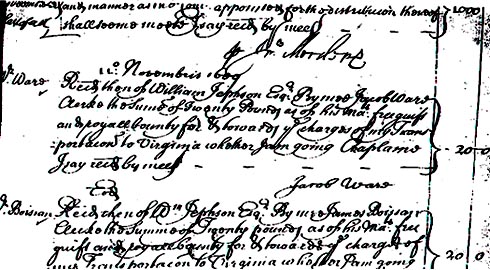 and manner as no... appointed for the distribucon thereof
shall seeme meete I say recd by mee
11o Novembris 1689
Ward Recd then of William Jephson Esqr By mee Jacob Ware
Clerke the Summe of Twenty Pounds as of his Mats free guift
and royall bounty for & towards ye charges of my Trans
portacon to Virginia whither I am going Chaplaine
I say recd by mee 20 0
Eod Jacob Ware
Boisnar Recd then of Wm Jephson Esqr By me James Boisnar
Clerke the Summe of Twenty pounds as of his Mats free
guift and royall bounty for & towards ye charges of
my Transportacon to Virginia whither I am going 20 0